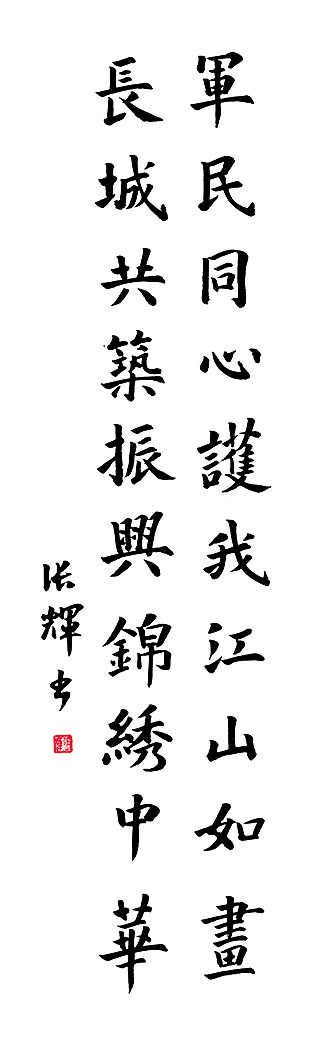 軍民同心護我江山如畫
長城共築振興錦綉中華
张輝书